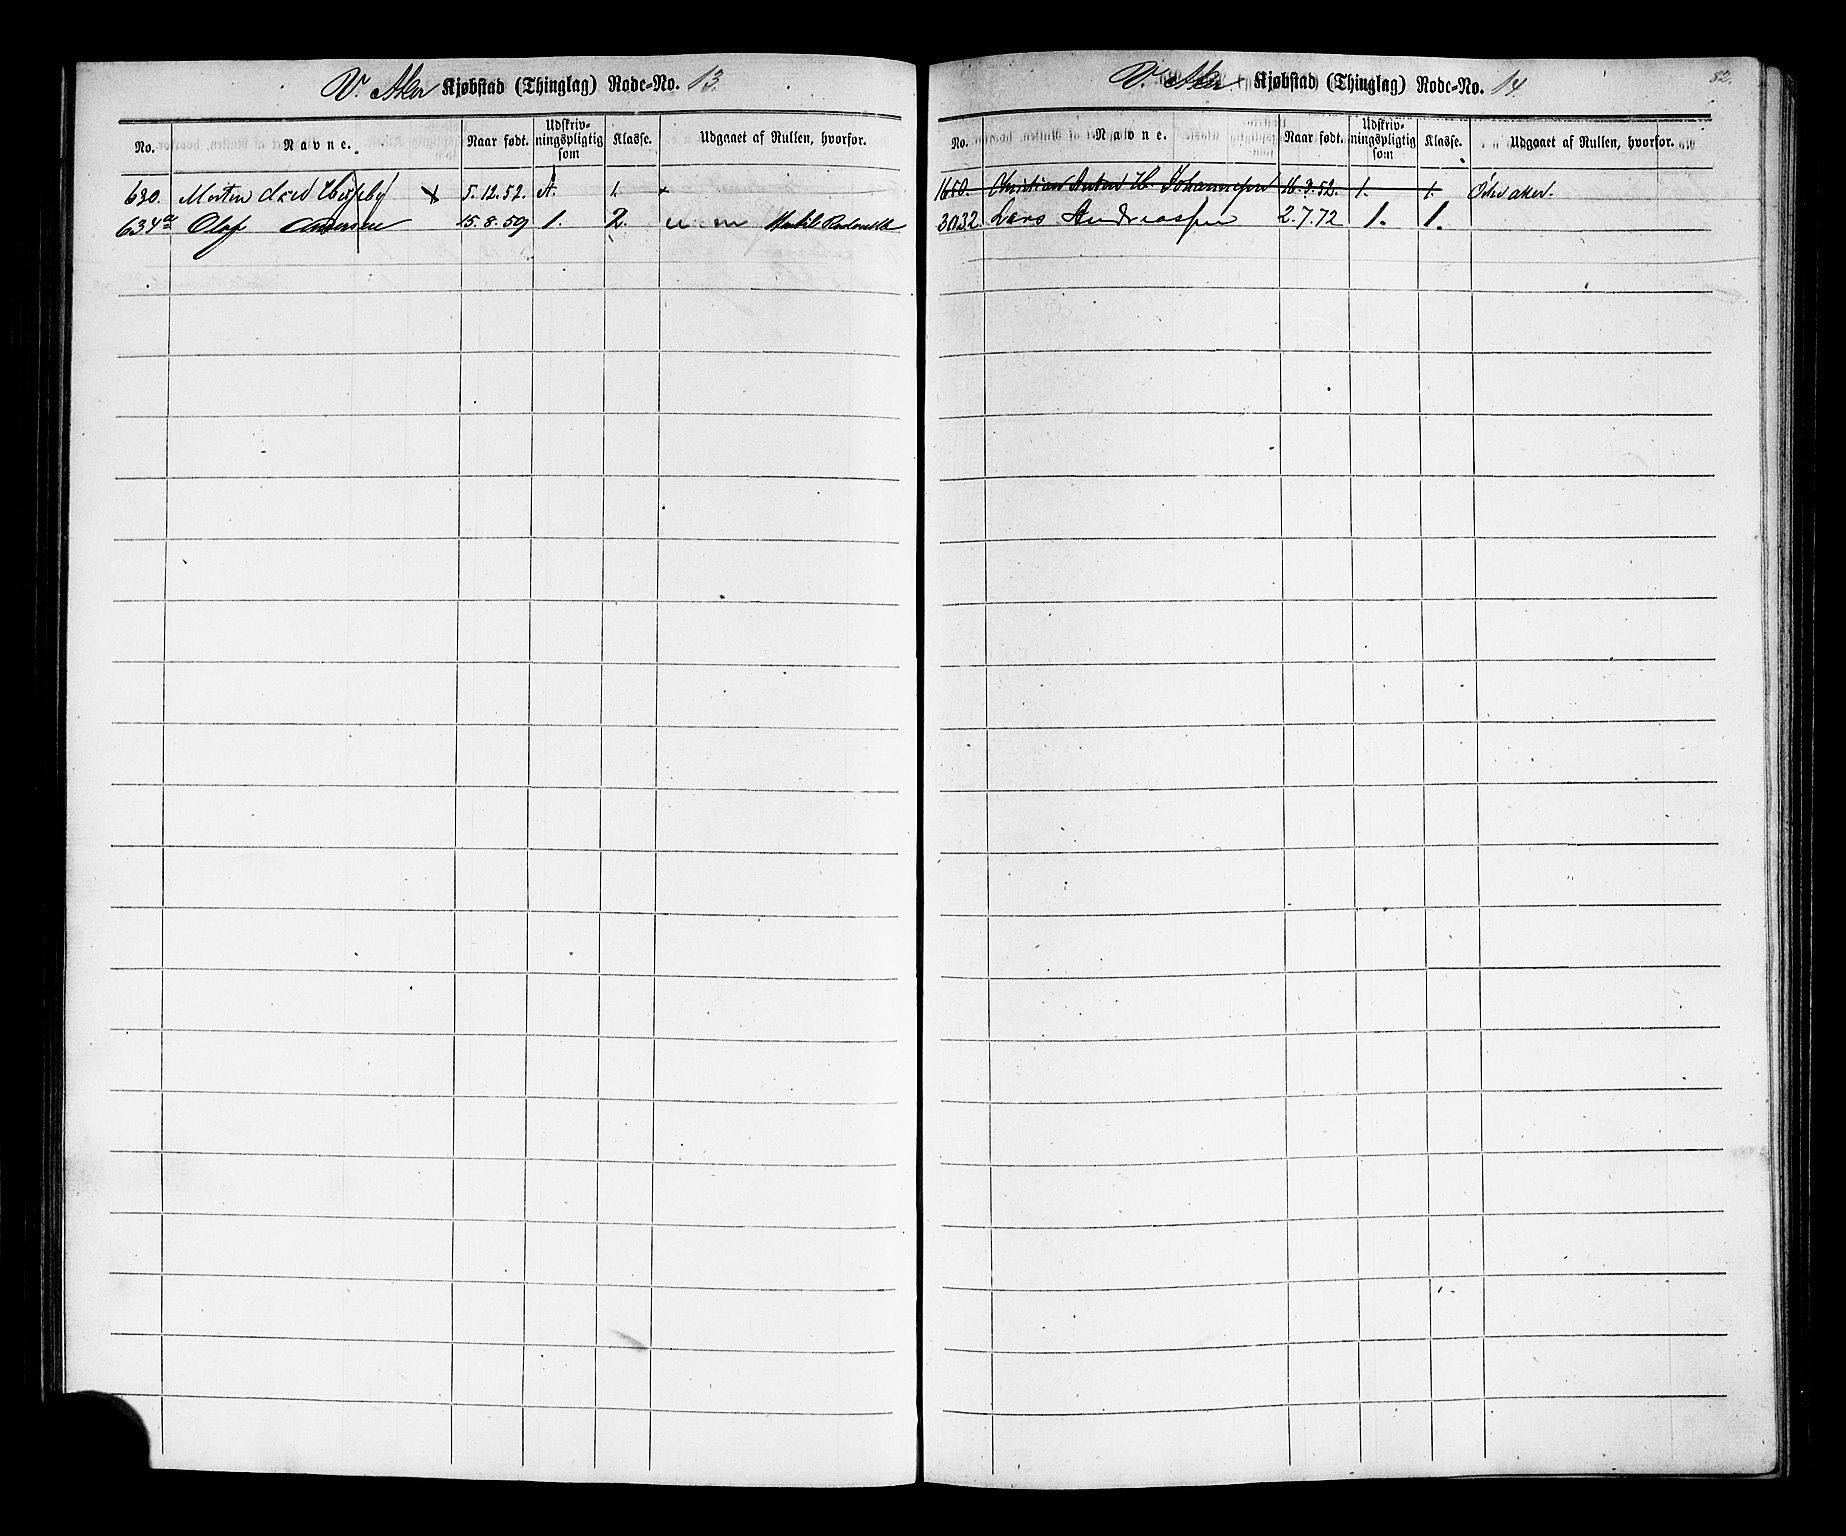 V. Aker Kjøbstad (Thinglag) Rode-No. 13.
No. Navne. Naar født. Udskrivningspligtig som Klasse. Udgaaet af Rullen, hvorfor.
630. Morten 5.12.52. A. 1.
634a Olaf Andersen 15.8.59 1. 2.
82.
V. Aker Kjøbstad (Thinglag) Rode-No. 14.
No. Navne. Naar født. Udskrivningspligtig som Klasse. Udgaaet af Rullen, hvorfor.
1650. Christian Anton H. Johannesen 16.3.52. 1. 1. Østre Aker.
3032. Lars Andreassen 2.7.72 1. 1.